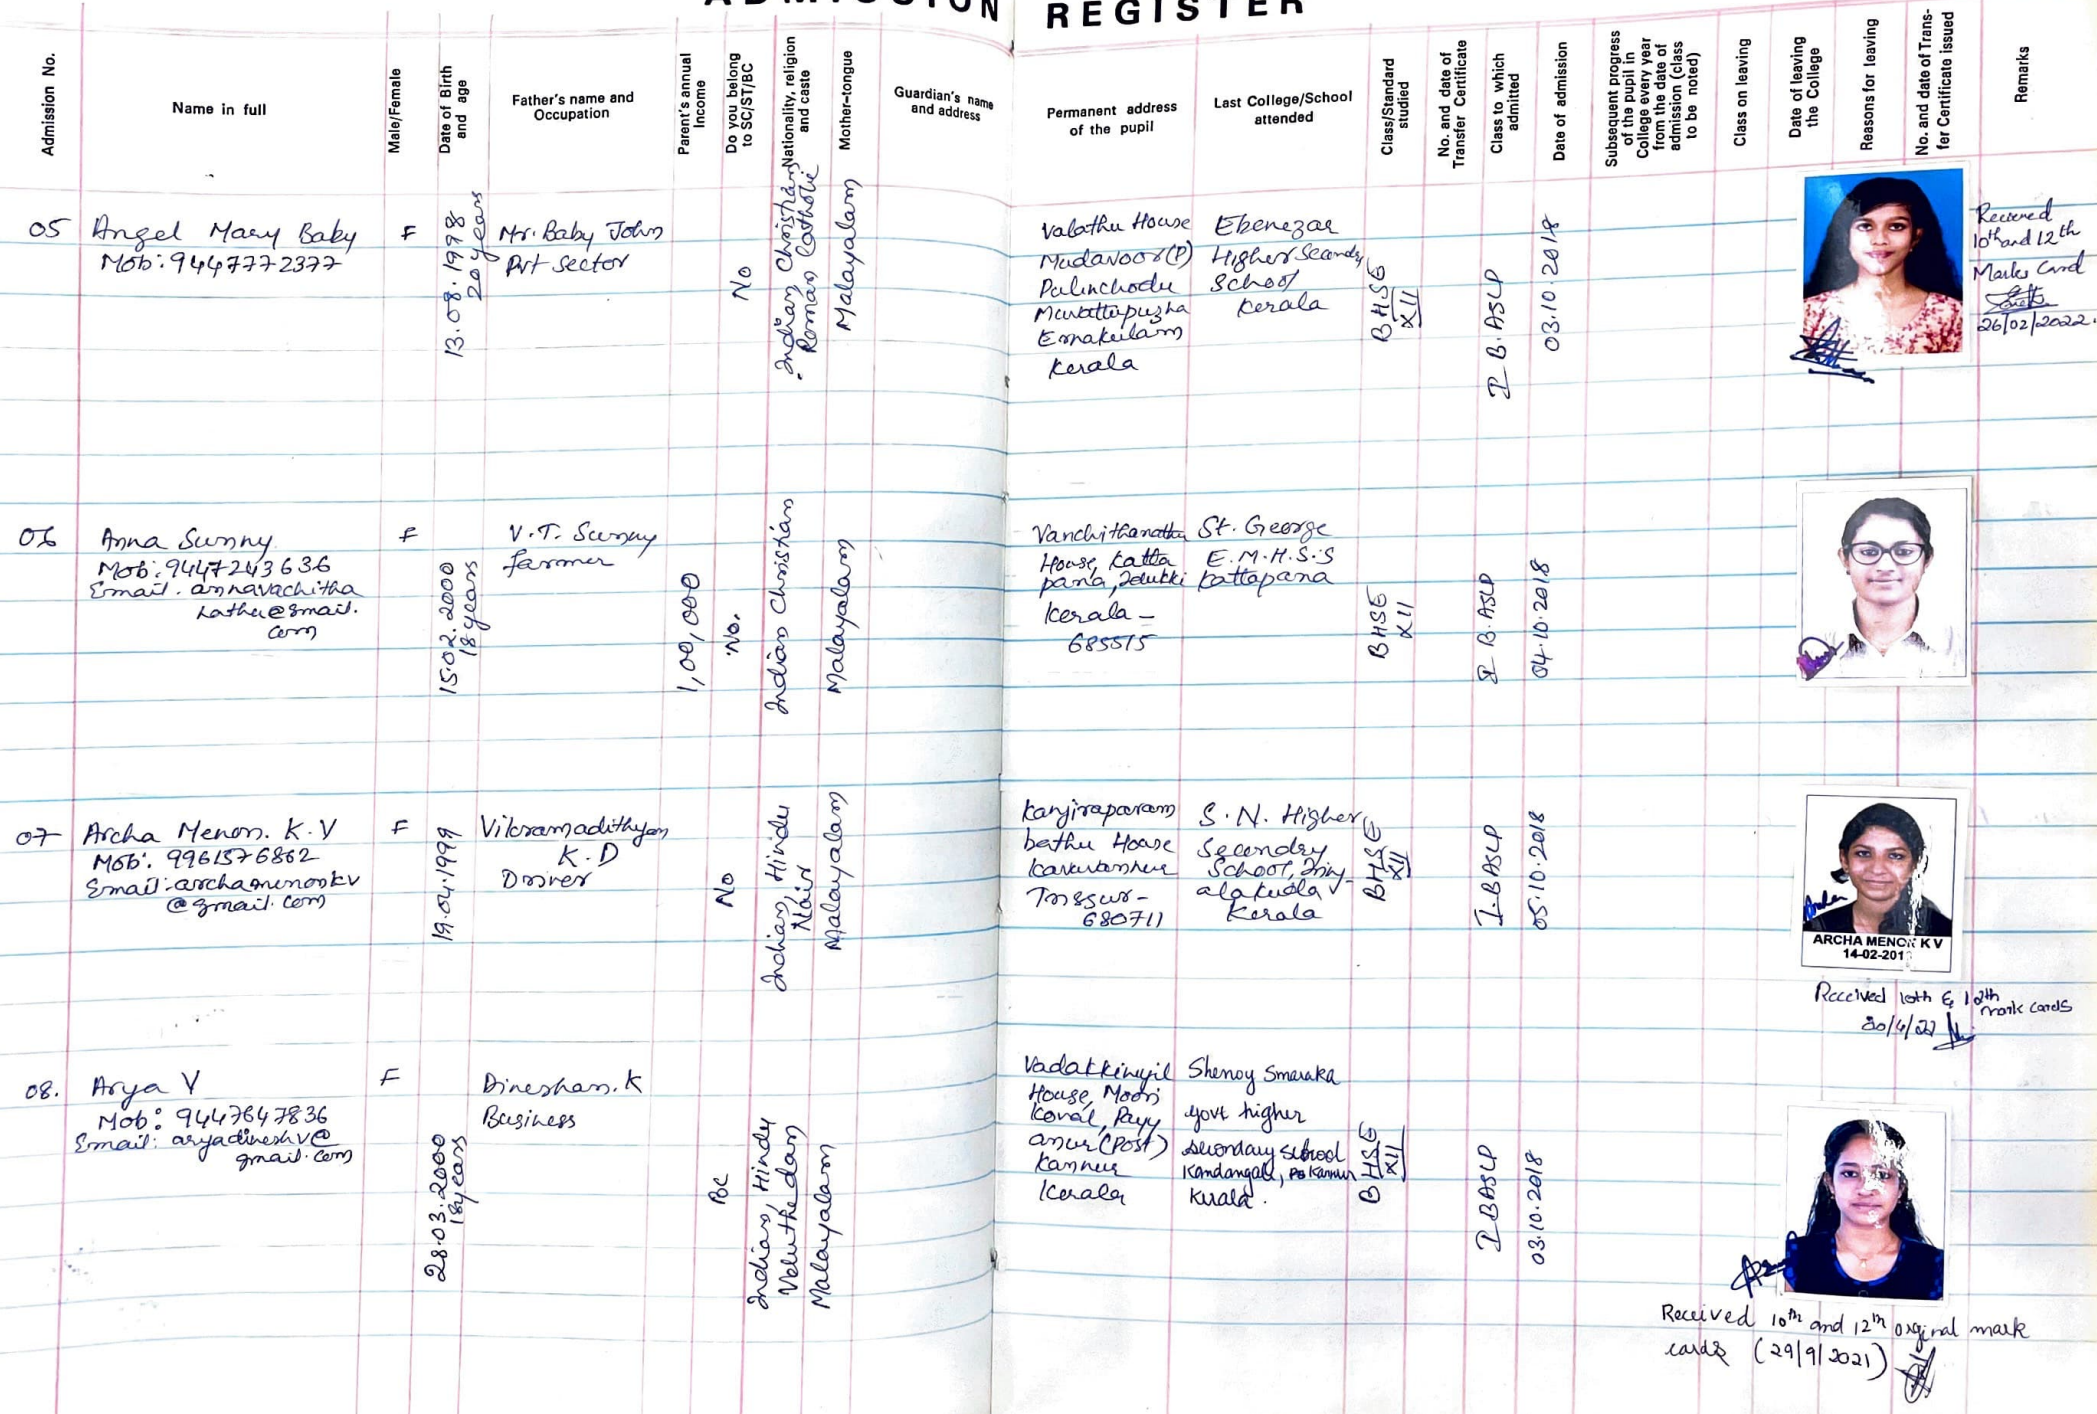 ADMISSION REGISTER
Admission No.
Name in full
Male/Female
Date of Birth
and age
Father's name and
Occupation
Parent's annual
Income
Do you belong
to SC/ST/BC
Nationality, religion
and caste
Mother-tongue
Guardian's name
and address
Permanent address
of the pupil
Last College/School
attended
Class/Standard
studied
No. and date of
Transfer Certificate
Class to which
admitted
Date of admission
Subsequent progress
of the pupil in
College every year
from the date of
admission (class
to be noted)
Class on leaving
Date of leaving
the College
Reasons for leaving
No. and date of Trans-
fer Certificate issued
Remarks
05
Angel Mary Baby
Mob: 9447772377
F
13.08.1998
20 years
Mr. Baby John
Pvt sector
No
Indian Christian
Roman Catholic
Malayalam
Valathu House
Mudavoor (P)
Palinchodu
Muvattupuzha
Ernakulam
Kerala
Ebenezar
Higher Scandy
School
Kerala
BHSE
XII
I B.ASLP
03.10.2018
Received
10th and 12th
Marks Card
26/02/2022.
06
Anna Sunny
Mob: 9447243636
Email. annavachitha
hathu@gmail.
com
F
15.02.2000
18 years
V.T. Sunny
farmer
1,00,000
No.
Indian Christian
Malayalam
Vanchithanathu
House, Katta
pana, Idukki
Kerala -
685515
St. George
E.M.H.S.S
Kattapana
BHSE
XII
I B.ASLP
04.10.2018
07
Archa Menon. K.V
Mob: 9961576862
Email: archamenonkv
@gmail.com
F
19.04.1999
Vikramadithyan
K.D
Driver
No
Indian, Hindu
Nair
Malayalam
Kanjiraparam
bathu House
Karuvannur
Trissur-
680711
S.N. Higher
Secondry
School, Irinj
alakuda
Kerala
BHSE
XII
I.BASLP
05.10.2018
ARCHA MENON K V
Received 10th & 12th
mark cards
08.
Arya V
Mob: 9447647836
Email: aryadineshv@
gmail.com
F
28.03.2000
18 years
Dineshan.K
Business
Indian, Hindu
Veluthedan
Malayalam
Vadakkiniyil
House, Moori
Koval, Payy
anur (Post)
Kannur
Kerala
Shenoy Smaraka
govt higher
secondary school
Kandangali, Po Kannur
Kerala.
BHSE
XII
I BASLP
03.10.2018
Received 10th and 12th orginal mark
cards (29/9/2021)